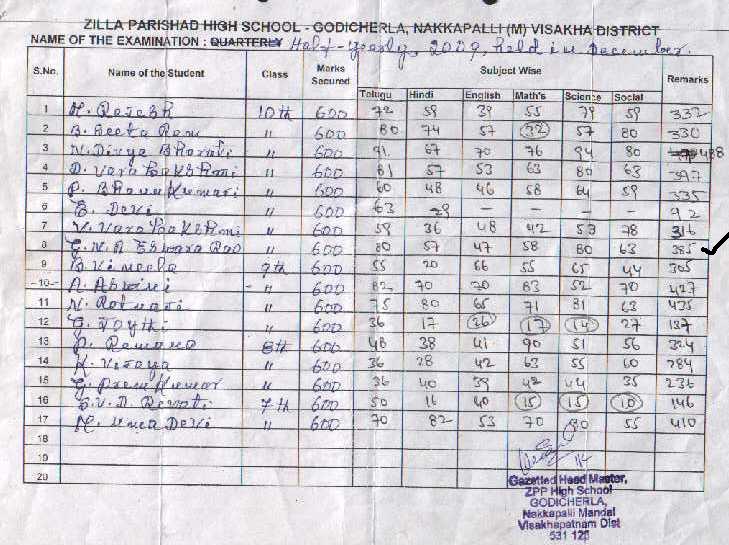 ZILLA PARISHAD HIGH SCHOOL - GODICHERLA, NAKKAPALLI (M) VISAKHA DISTRICT
NAME OF THE EXAMINATION : QUARTERLY Half-yearly, 2009, held in December.
S.No. Name of the Student Class Marks Secured Subject Wise Remarks
Telugu Hindi English Math's Science Social
1 10th 600 72 59 39 55 79 59 332
2 B. Seeta Ram " 600 80 74 57 32 57 80 330
3 N. Divya Bharati " 600 91 67 70 76 94 80 488
4 D. Vara Lakshmi " 600 81 57 53 63 80 63 397
5 P. Bhanu Kumari " 600 60 48 46 58 64 59 335
6 Devi " 600 63 29 — — — — 92
7 V. Vara Lakshmi " 600 59 36 48 42 53 78 316
8 Eswara Rao " 600 80 57 47 58 80 63 385 ✓
9 9th 600 55 20 66 55 65 44 305
-10- " 600 82 70 70 83 52 70 427
11 N. Ratnam " 600 75 80 65 71 81 63 435
12 " 600 36 17 26 17 14 27 137
13 P. Ramana 8th 600 48 38 41 90 51 56 324
14 K. Vijaya " 600 36 28 42 63 55 60 284
15 G. Prem Kumar " 600 36 40 39 42 44 35 236
16 G.V.D. Revati 7th 600 50 16 40 15 15 10 146
17 Uma Devi " 600 70 82 53 70 80 55 410
18
19
20
Gazetted Head Master,
ZPP High School
GODICHERLA,
Nakkapalli Mandal
Visakhapatnam Dist
531 120